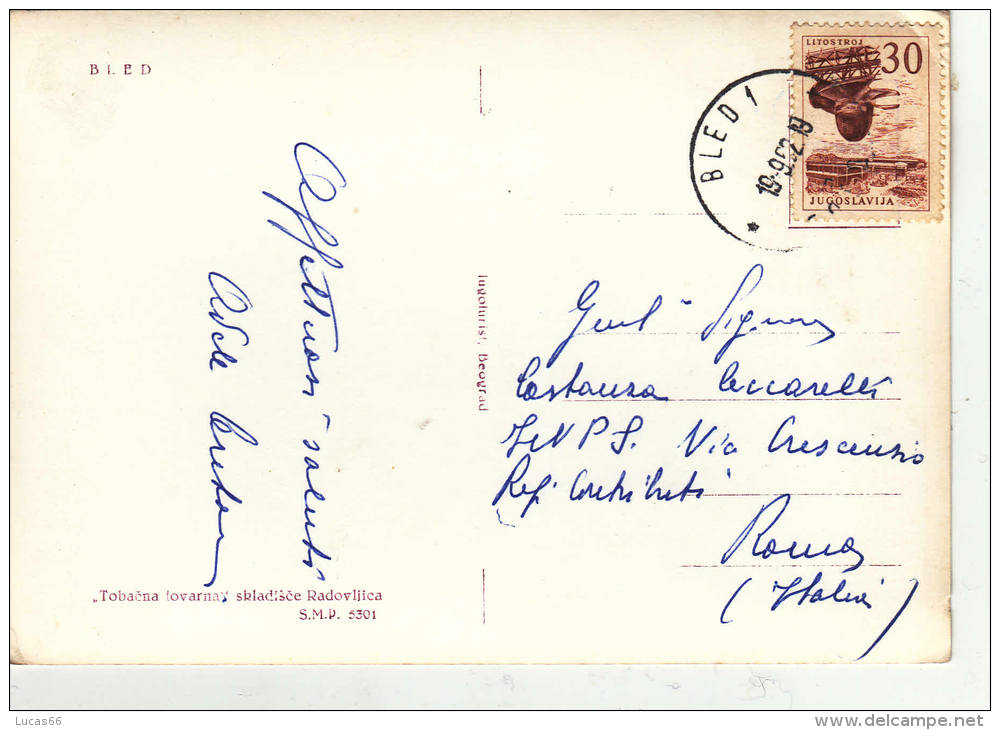 BLED
LITOSTROJ
30
JUGOSLAVIJA
BLED 1
19-9-62 19
Affettuosi saluti
Adele
Jugoturist, Beograd
Gent. Signora
Costanza Ceccarelli
INPS. Via Crescenzio
Rep. Contributi
Roma
(Italia)
„Tobačna tovarna" skladišče Radovljica
S.M.P. 5301
Lucas66
delcampe.net